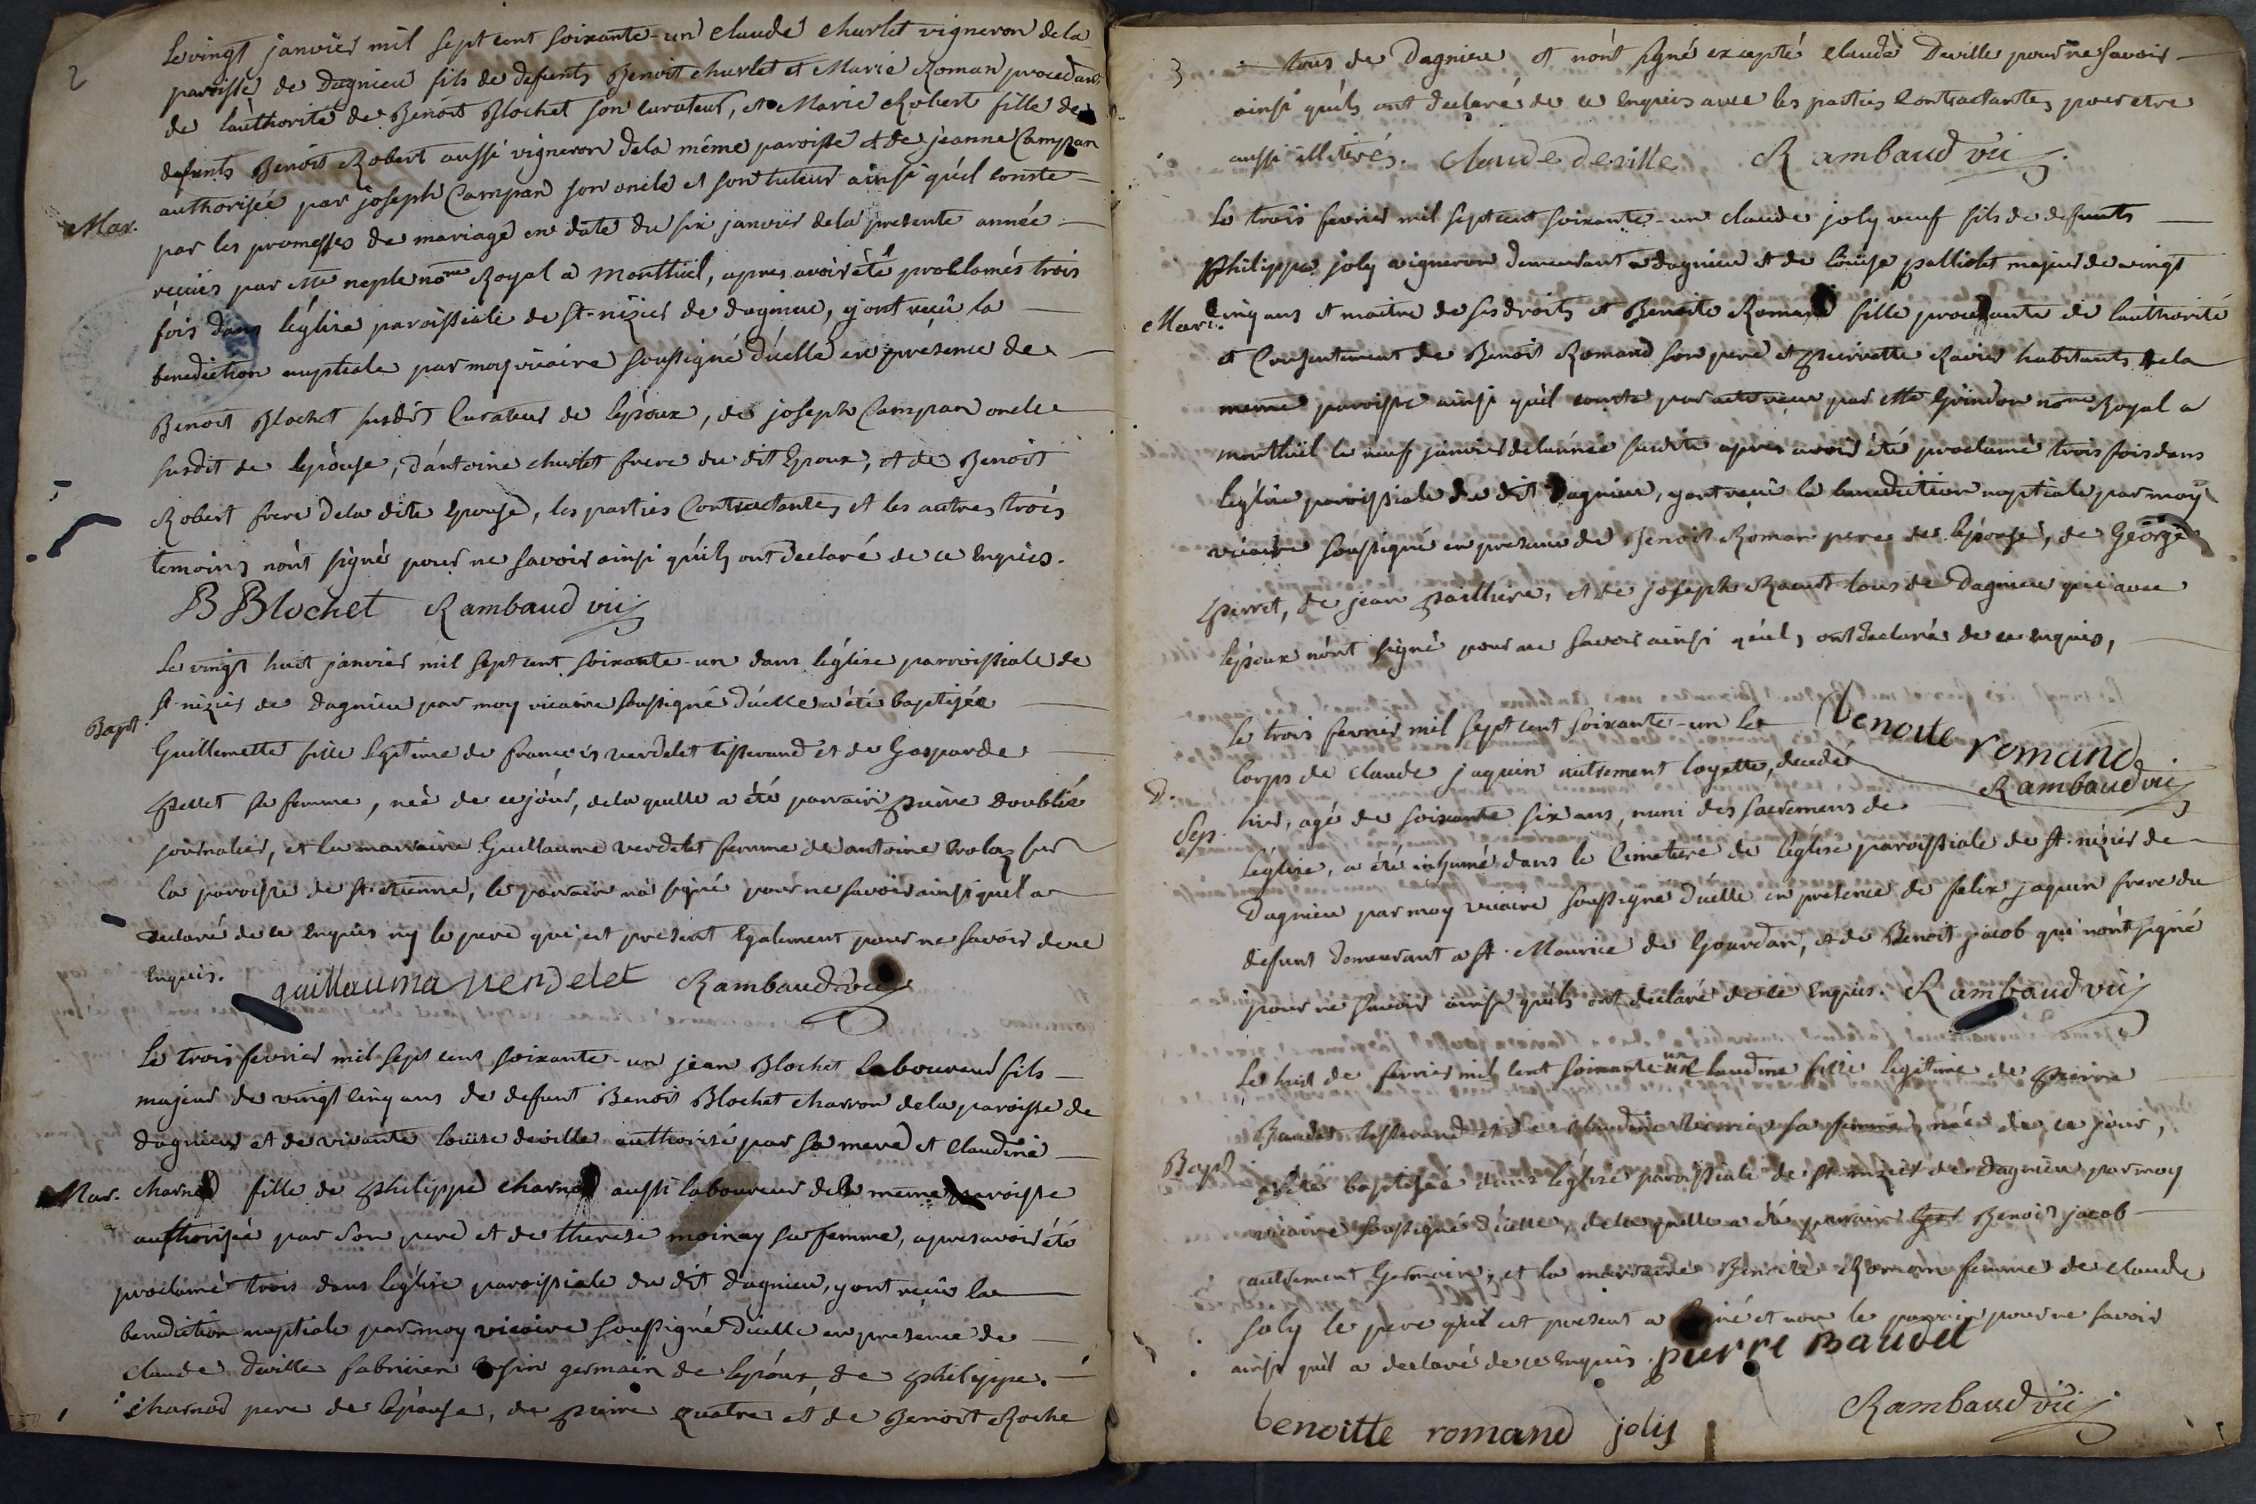 2
Le vingt janvier mil sept cent soixante-un claude churlet vigneron de la
paroisse de Dagnieu fils de defunts Benoit churlet et Marie Roman procedant
de l'authorité de Benoit Blochet son curateur, et Marie Robert fille de
defunts Benoit Robert aussi vigneron de la même paroisse et de jeanne Campan
authorisée par joseph Campan son oncle et son tuteur ainsi qu'il conste
Mar.
par les promesses de mariage en date du six janvier de la presente année
reçuës par Me neple nore Royal a montluël, apres avoir été proclamés trois
fois dans l'église paroissiale de St-nizier de dagnieu, y ont reçû la
benediction nuptiale par moy vicaire soussigné d'icelle en présence de
Benoit Blochet susdit Curateur de l'époux, de joseph Campan oncle
susdit de l'epouse, d'antoine churlet frere du dit Epoux, et de Benoit
Robert frere de la dite Epouse, les parties Contractantes et les autres trois
temoins n'ont signé pour ne savoir ainsi qu'ils ont declaré de ce Enquis.
B Blochet Rambaud vic
Le vingt huit janvier mil sept cent soixante-un dans l'église parroissiale de
st-nizier de dagnieu par moy vicaire soussigné d'icelle a été baptisée
Bapt.
Guillemette fille legitime de francois verdelet tisserand et de Gasparde
Pellet sa femme, née de ce jour, de la quelle a été parrain pierre doublié
journalier, et la marraine Guillauma verdelet femme de antoine sur
la paroisse de st. etienne, le parrain n'a signé pour ne savoir ainsi qu'il a
declaré de ce Enquis ny le pere qui est present Egalement pour ne savoir de ce
Enquis. guillauma verdelet Rambaud vic
Le trois fevrier mil sept cent soixante-un jean Blochet laboureur fils
majeur de vingt cinq ans de defunt Benoit Blochet charron de la paroisse de
dagnieu et de vivante loüise deville authorisé par sa mere et Claudine
Mar. charnod fille de philippe charnod aussi laboureur de la meme paroisse
authorisée par son pere et de therese moinay sa femme, apres avoir été
proclamé trois dans l'église paroissiale du dit dagnieu, y ont reçû la
benediction nuptiale par moy vicaire soussigné d'icelle en presence de
claude deville fabricien cousin germain de l'epoux, de philippe
charnod pere de l'épouse, de pierre quatre et de Benoit Roche
3
tous de Dagnieu et n'ont signé excepté claude Deville pour ne savoir
ainsi qu'ils ont declaré de ce Enquis avec les parties Contractantes pour etre
aussi illiterés. claude deville Rambaud vic
Le trois fevrier mil sept cent soixante-un claude joly veuf fils de defunts
philippe joly vigneron demeurant a dagnieu et de loüise palliolet majeur de vingt
Mari.
cinq ans et maitre de ses droits et Benoite Romand fille procedante de l'authorité
et Consentement de Benoit Romand son pere et pierrette Ravier habitants de la
meme paroisse ainsi qu'il conste par acte reçu par Me Guindon nore Royal a
montluël le neuf janvier de l'année susdite apres avoir été proclamé trois fois dans
l'église paroissiale du dit Dagnieu, y ont reçû la benediction nuptiale par moy
vicaire soussigné en presence de Benoit Roman pere de l'épouse, de George
pirret, de jean paillere, et de joseph tous de Dagnieu qui avec
l'epoux n'ont signé pour ne savoir ainsi qu'ils ont declarés de ce enquis,
benoite romand
Rambaud vic
Le trois fevrier mil sept cent soixante-un le
corps de claude jaquin autrement loyette, decedé
D.
Sep.
hier, agé de soixante six ans, muni des sacremens de
l'église, a été inhumé dans le Cimetiere de l'église paroissiale de st. nizier de
Dagnieu par moy vicaire soussigné d'icelle en presence de felix jaquin frere du
defunt demeurant a st. Maurice de Gourdan, et de Benoit jacob qui n'ont signé
pour ne savoir ainsi qu'ils ont declaré de ce Enquis. Rambaud vic
Le huit de fevrier mil cent soixante un Claudine fille legitime de pierre
Baudet tisserand et de claudine sa femme, née de ce jour,
Bapt
a été baptisée dans l'église paroissiale de st. nizier de dagnieu par moy
vicaire soussigné d'icelle, de la quelle a été parrain Benoit jacob
autrement Germain, et la marraine Benoite Romain femme de claude
joly le pere qui est present a signé et non le parrain pour ne savoir
ainsi qu'il a declaré de ce Enquis. pierre Baudet
benoitte romand jolij
Rambaud vic